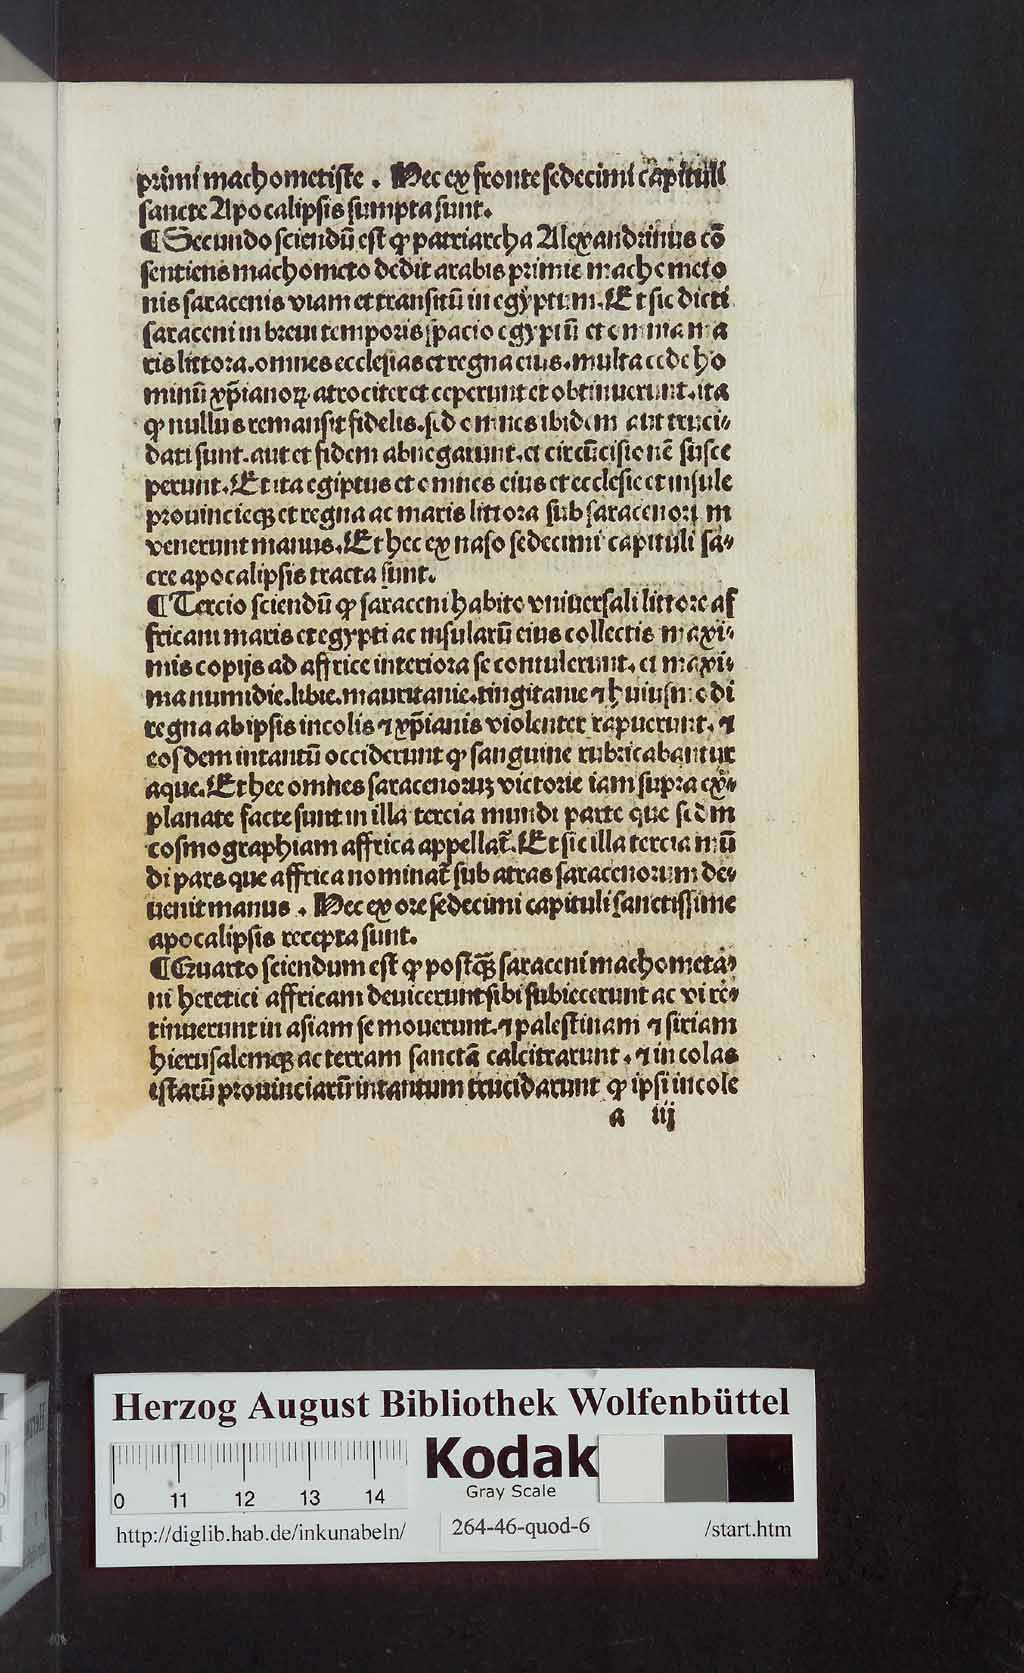 primi machometiste . Hec ex fronte sedecimi capituli
sancte Apocalipsis sumpta sunt.
¶ Secundo sciendū est ꝙ patriarcha Alexandrinus cō
sentiens machometo dedit arabis primis machometo
nis saracenis viam et transitū in egyptum. Et sic dicti
saraceni in breui temporis spacio egyptū et omnia ma
ris littora. omnes ecclesias et regna eius. multa cede ho
minū xp̄ianoꝝ atrociter et ceperunt et obtinuerunt. ita
ꝙ nullus remansit fidelis. sed omnes ibidem aut truci⸗
dati sunt. aut et fidem abnegarunt. et circūcisionē susce
perunt. Et ita egiptus et omnes eius et ecclesie et insule
prouincieqꝫ et regna ac maris littora sub saracenorum
venerunt manus. Et hec ex naso sedecimi capituli sa⸗
cre apocalipsis tracta sunt.
¶ Tercio sciendū ꝙ saraceni habito vniuersali littore af
fricani maris et egypti ac insularū eius collectis maxi⸗
mis copijs ad affrice interiora se contulerunt. et maxi⸗
ma numidie. libie. mauritanie. tingitanie ⁊ huiusmodi
regna ab ipsis incolis ⁊ xp̄ianis violenter rapuerunt. ⁊
eosdem intantū occiderunt ꝙ sanguine rubricabantur
aque. Et hec omnes saracenoruꝫ victorie iam supra ex⸗
planate facte sunt in illa tercia mundi parte que scdm
cosmographiam affrica appellat̄. Et sic illa tercia mū
di pars que affrica nominat̄ sub atras saracenorum de⸗
uenit manus . Hec ex ore sedecimi capituli sanctissime
apocalipsis recepta sunt.
¶ Quarto sciendum est ꝙ postqꝫ̄ saraceni machometa⸗
ni heretici affricam deuicerunt sibi subiecerunt ac vi re⸗
tinuerunt in asiam se mouerunt. ⁊ palestinam ⁊ siriam
hierusalemqꝫ ac terram sanctā calcitrarunt . ⁊ incolas
istarū prouinciarū intantum trucidarunt ꝙ ipsi incole
a iij
Herzog August Bibliothek Wolfenbüttel
Kodak
Gray Scale
0 11 12 13 14
http://diglib.hab.de/inkunabeln/
264-46-quod-6
/start.htm